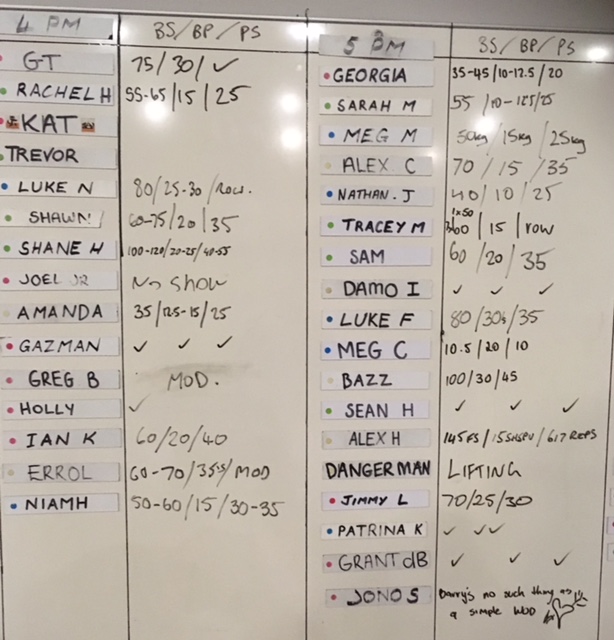 4 PM BS/BP/PS
GT 75/30/✓
RACHEL H 55-65/15/25
KAT
TREVOR
LUKE N 80/25-30/Row.
SHAWN 60-75/20/35
SHANE H 100-120/20-25/40-55
JOEL JR No SHOW
AMANDA 35/12.5-15/25
GAZMAN ✓ ✓ ✓
GREG B MOD.
HOLLY ✓
IAN K 60/20/40
ERROL 60-70/35's/MOD
NIAMH 50-60/15/30-35
5 PM BS/BP/PS
GEORGIA 35-45/10-12.5/20
SARAH M 55/10-12.5/25
MEG M 50kg/15kg/25kg
ALEX C 70/15/35
NATHAN. J 40/10/25
1x50
TRACEY M 60/15/row
SAM 60/20/35
DAMO I ✓ ✓ ✓
LUKE F 80/30s/35
MEG C 10.5/20/10
BAZZ 100/30/45
SEAN H ✓ ✓ ✓
ALEX H 145FS/15SHSPU/617 REPS
DANGERMAN LIFTING
JIMMY L 70/25/30
PATRINA K ✓ ✓✓
GRANT dB ✓ ✓ ✓
JONO S Darry's no such thing as
a simple WOD